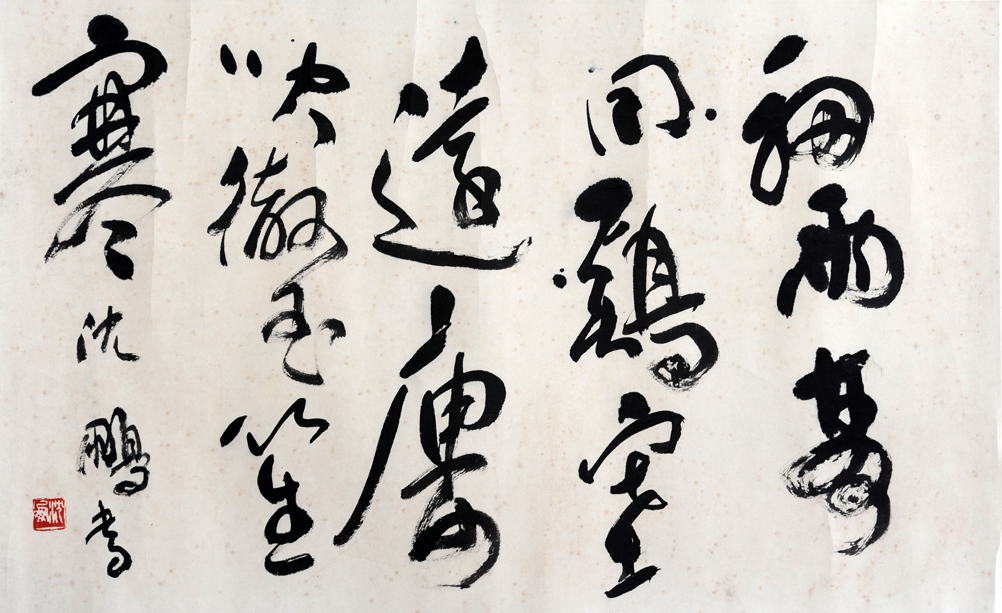 細雨夢
回鷄塞
遠廔
吹徹玉笙
寒 沈鵬書